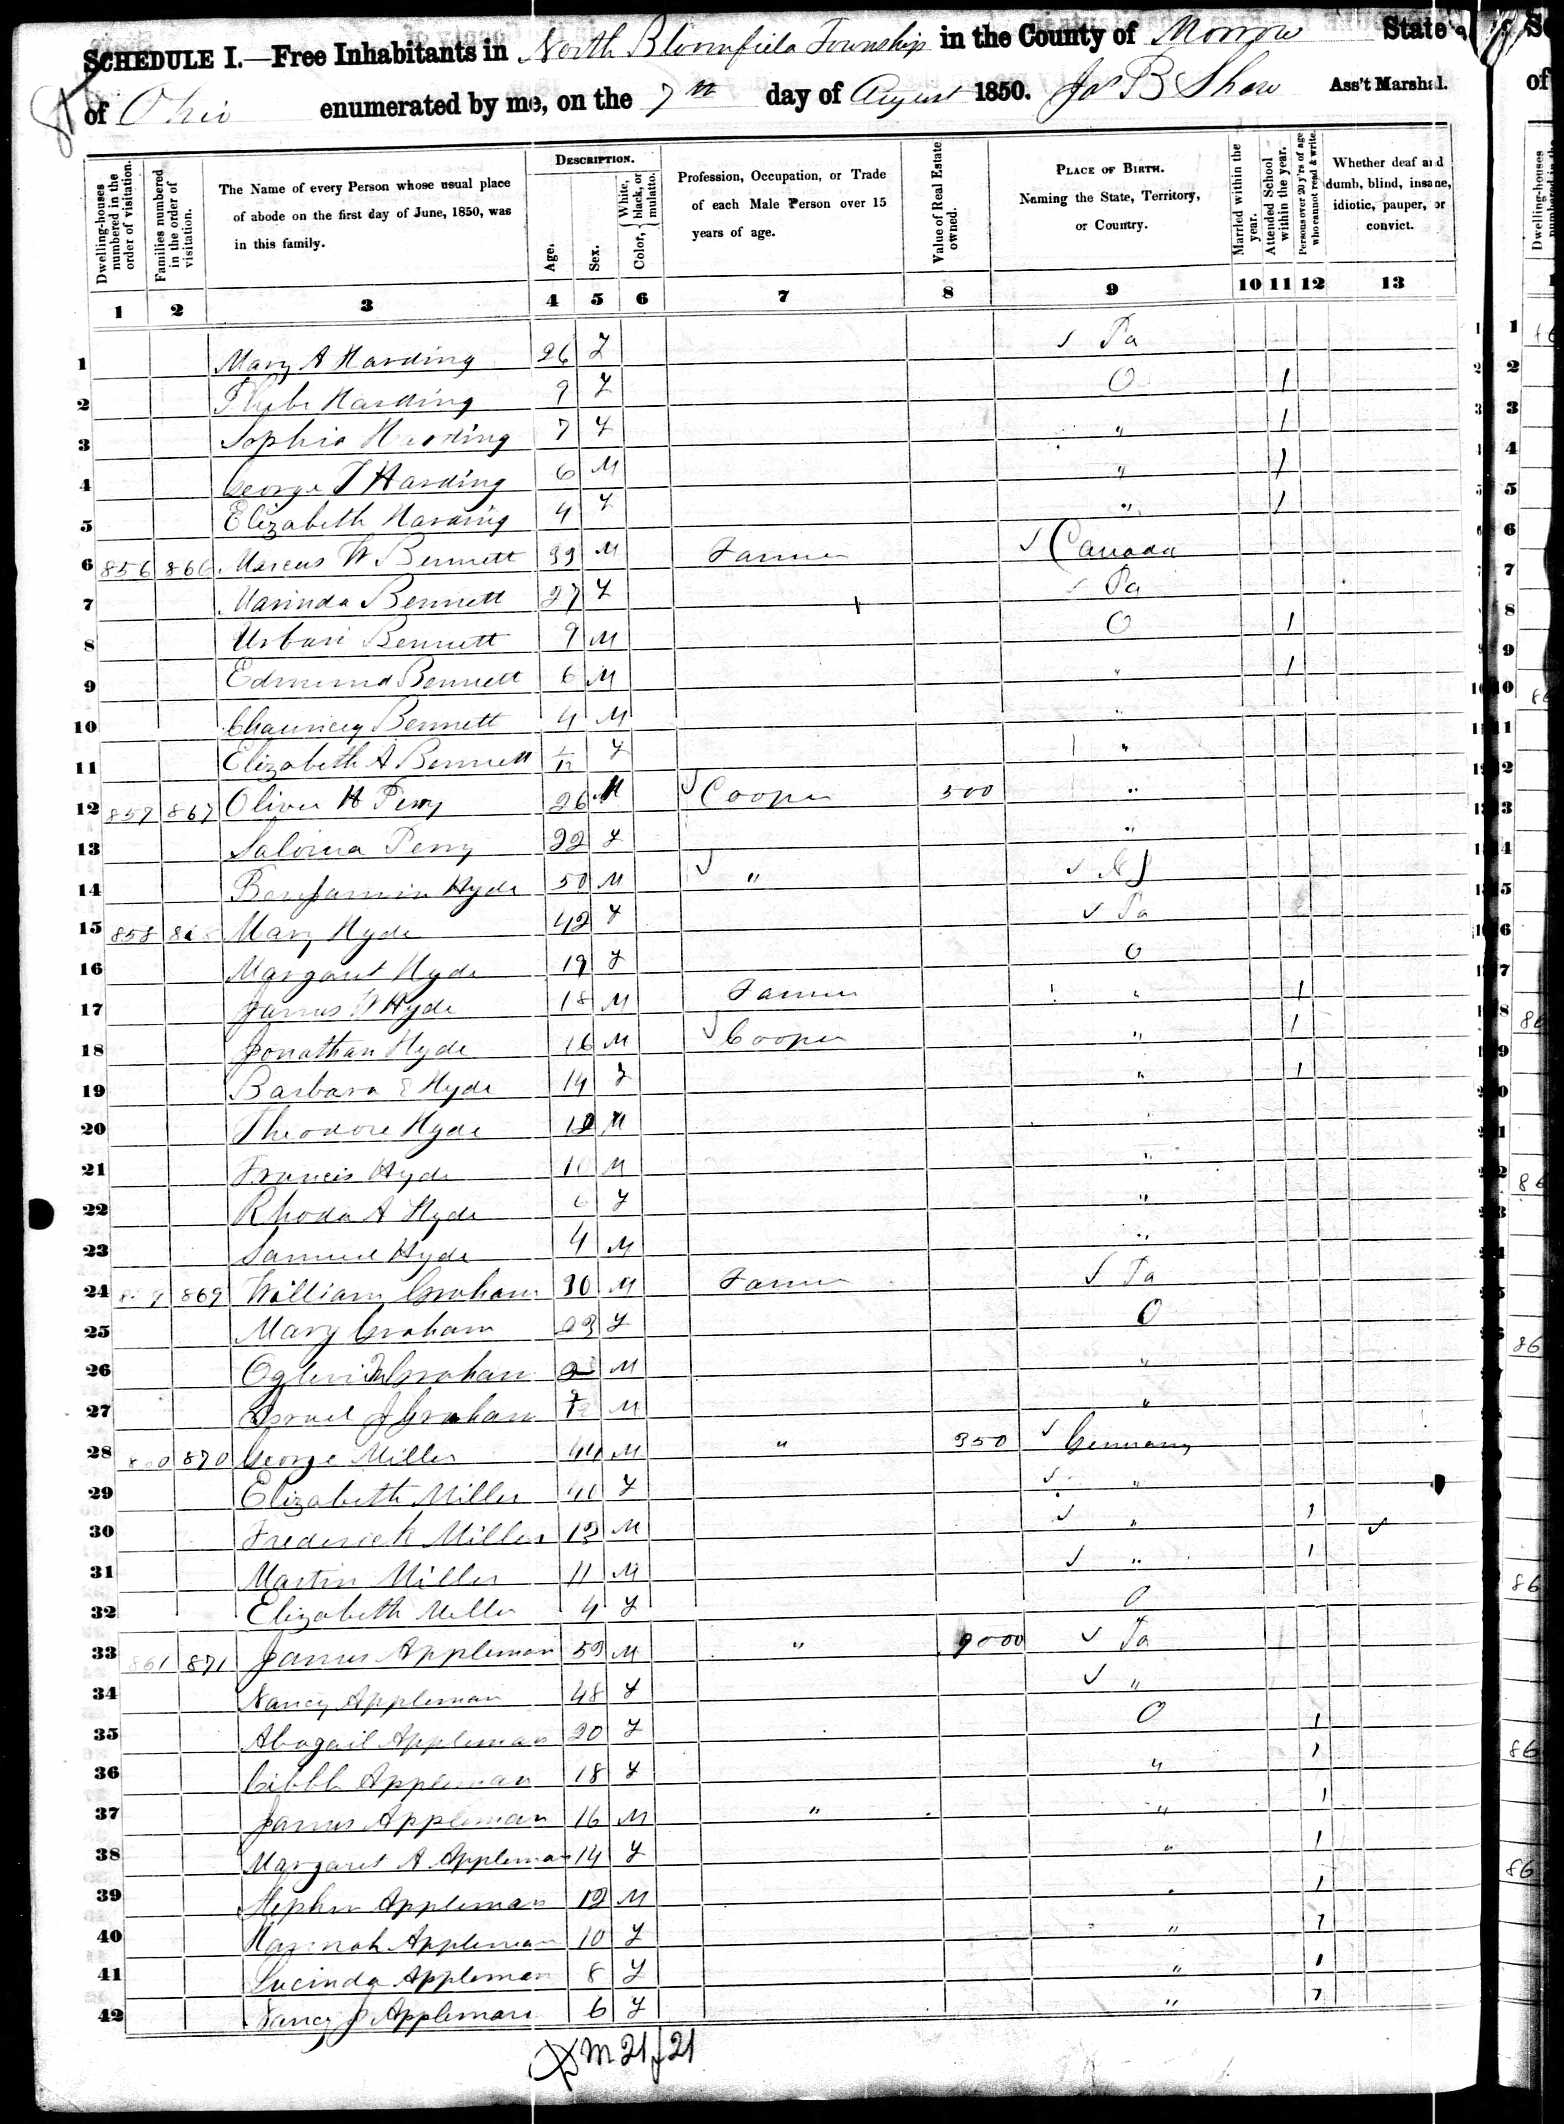 SCHEDULE I.—Free Inhabitants in North Bloomfield Township in the County of Morrow State
of Ohio enumerated by me, on the 7th day of August 1850. Jos B Shaw Ass't Marshal.
Dwelling-houses numbered in the order of visitation.
Families numbered in the order of visitation.
The Name of every Person whose usual place of abode on the first day of June, 1850, was in this family.
DESCRIPTION.
Age.
Sex.
Color, White, black, or mulatto.
Profession, Occupation, or Trade of each Male Person over 15 years of age.
Value of Real Estate owned.
PLACE OF BIRTH. Naming the State, Territory, or Country.
Married within the year.
Attended School within the year.
Persons over 20 y'rs of age who cannot read & write.
Whether deaf and dumb, blind, insane, idiotic, pauper, or convict.
1 2 3 4 5 6 7 8 9 10 11 12 13
1 Mary A Harding 26 F Pa
2 Phebe Harding 9 F O 1
3 Sophia Harding 7 F " 1
4 George T Harding 6 M " 1
5 Elizabeth Harding 4 F " 1
6 856 866 Marcus W Bennett 39 M Farmer Canada
7 Marinda Bennett 27 F Pa
8 Urban Bennett 9 M O 1
9 Edmund Bennett 6 M " 1
10 Chauncey Bennett 4 M "
11 Elizabeth A Bennett 1/12 F "
12 857 867 Oliver H Perry 26 M Cooper 500 "
13 Salvina Perry 22 F "
14 Benjamin Hyde 50 M " NJ
15 858 868 Mary Hyde 42 F Pa
16 Margaret Hyde 19 F O
17 James W Hyde 18 M Farmer " 1
18 Jonathan Hyde 16 M Cooper " 1
19 Barbara E Hyde 14 F " 1
20 Theodore Hyde 12 M "
21 Francis Hyde 10 M "
22 Rhoda A Hyde 6 F "
23 Samuel Hyde 4 M "
24 859 869 William Graham 30 M Farmer Pa
25 Mary Graham 23 F O
26 Graham M "
27 Israel J Graham M "
28 860 870 George Miller 44 M " 350 Germany
29 Elizabeth Miller 41 F "
30 Frederick Miller 13 M " 1
31 Martin Miller 11 M " 1
32 Elizabeth Miller 4 F O
33 861 871 James Appleman 53 M " 9000 Pa
34 Nancy Appleman 48 F "
35 Abagail Appleman 20 F O 1
36 Appleman 18 F " 1
37 James Appleman 16 M " " 1
38 Margaret A Appleman 14 F " 1
39 Stephen Appleman 12 M " 1
40 Hannah Appleman 10 F " 1
41 Lucinda Appleman 8 F " 1
42 Nancy J Appleman 6 F " 1
M 21 f 21